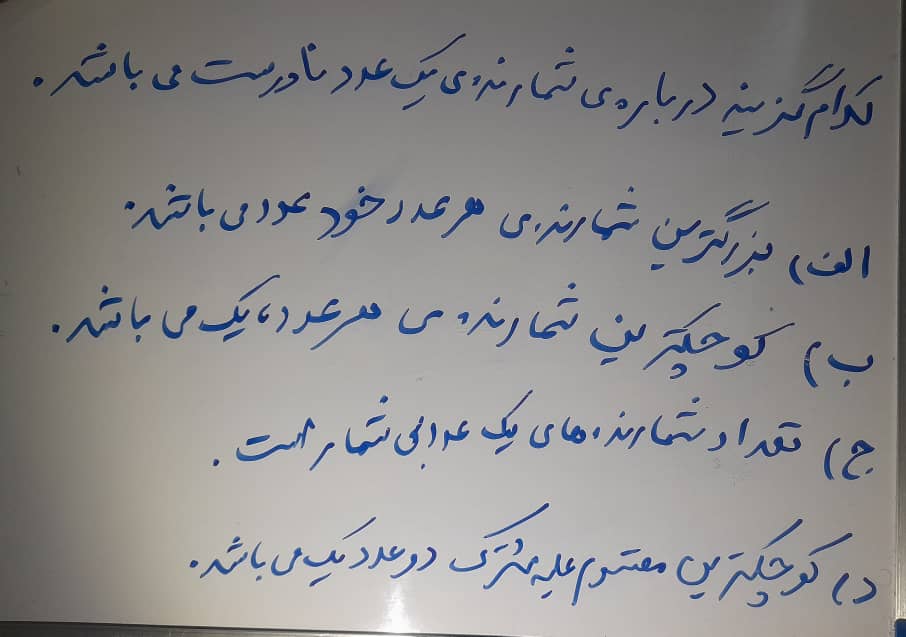 کدام گزینه درباره‌ی شمارنده‌ی یک عدد نادرست می باشد.
الف) بزرگترین شمارنده‌ی هر عدد خود عدد می باشد.
ب) کوچکترین شمارنده‌ی هر عدد، یک می باشد.
ج) تعداد شمارنده‌های یک عدد بی شمار است.
د) کوچکترین مقسوم علیه مشترک دو عدد یک می باشد.